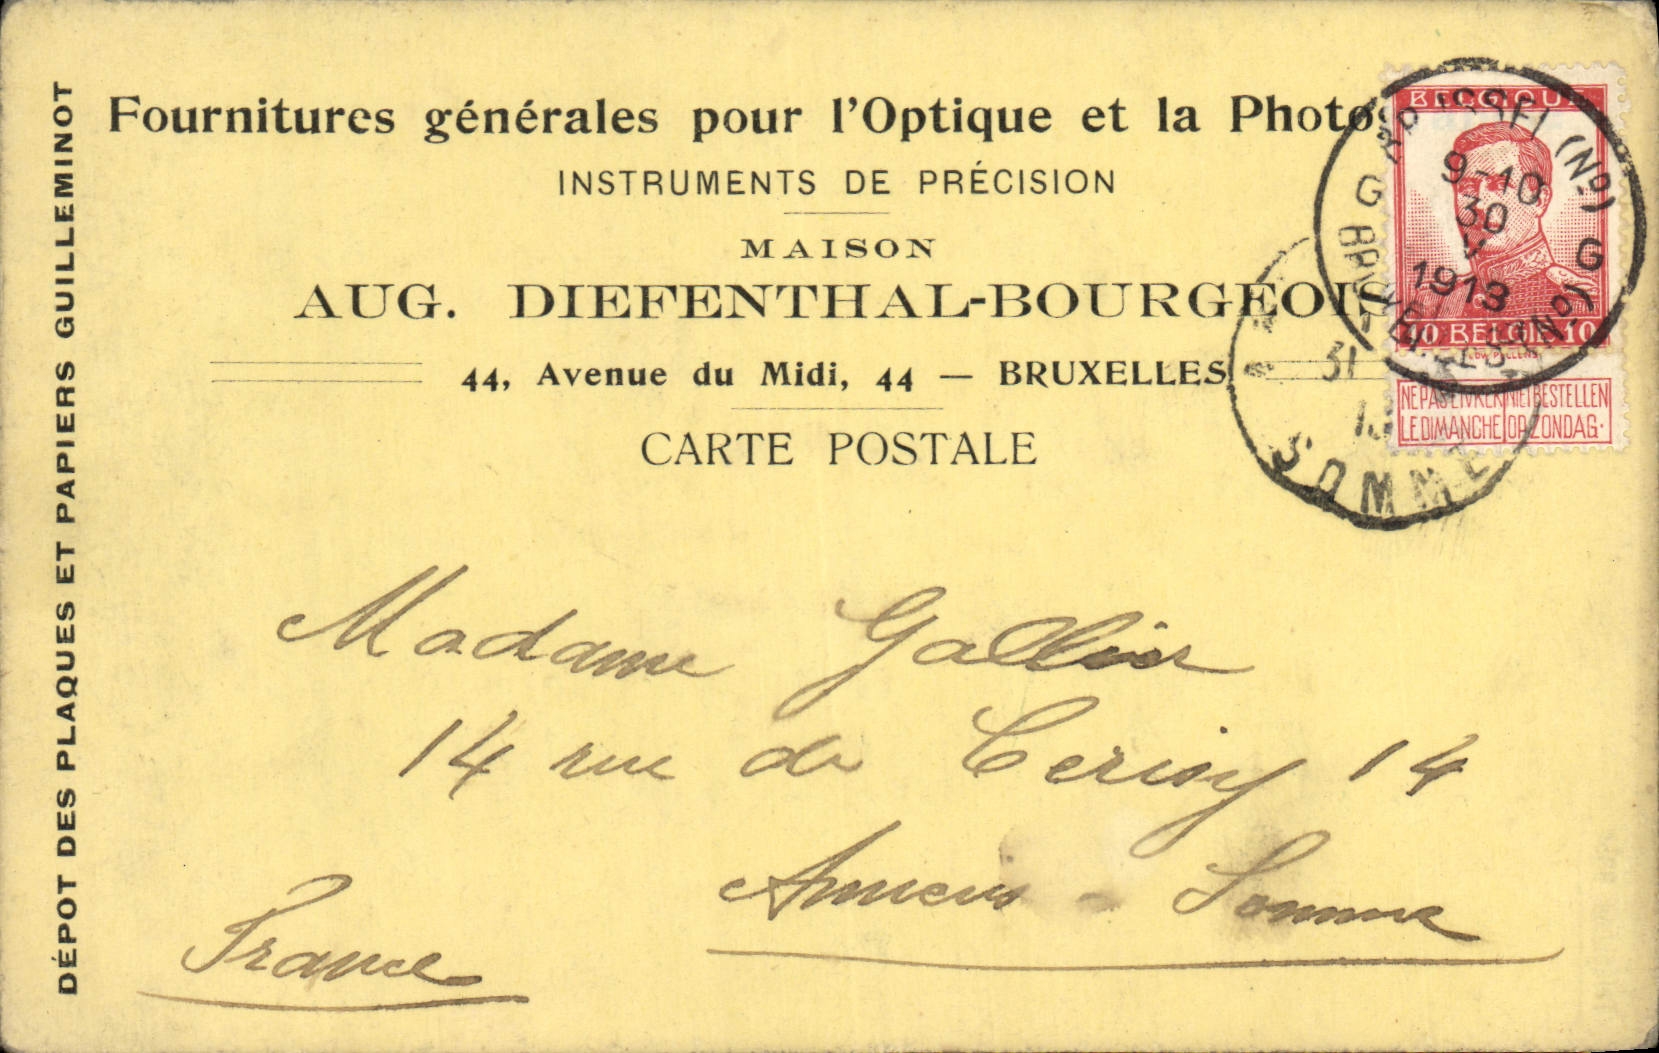 DÉPOT DES PLAQUES ET PAPIERS GUILLEMINOT
Fournitures générales pour l'Optique et la Photo
INSTRUMENTS DE PRÉCISION
MAISON
AUG. DIEFENTHAL-BOURGEOIS
44, Avenue du Midi, 44 — BRUXELLES
CARTE POSTALE
BELGIQUE
10 BELGIË 10
NE PAS LIVRER LE DIMANCHE
NIET BESTELLEN OP ZONDAG.
BRUSSEL (Nd)
G G
9-10
30
V
1913
31
13
SOMME
Madame Gallier
14 rue de Cerisy 14
Amiens - Somme
France